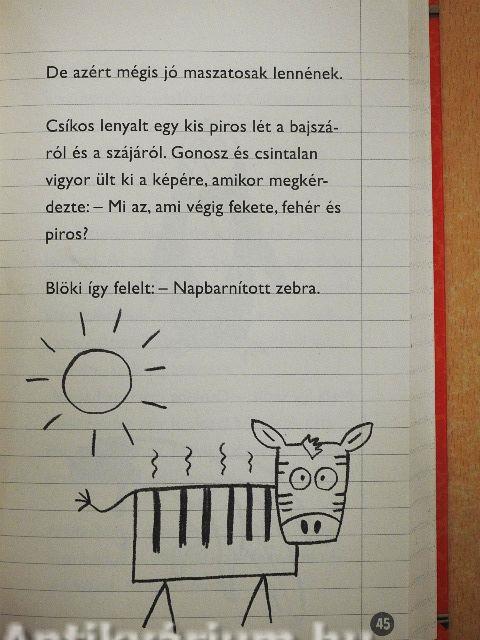 De azért mégis jó maszatosak lennének.
Csíkos lenyalt egy kis piros lét a bajszá-
ról és a szájáról. Gonosz és csintalan
vigyor ült ki a képére, amikor megkér-
dezte: – Mi az, ami végig fekete, fehér és
piros?
Blöki így felelt: – Napbarnított zebra.
45
Antikvárium.hu